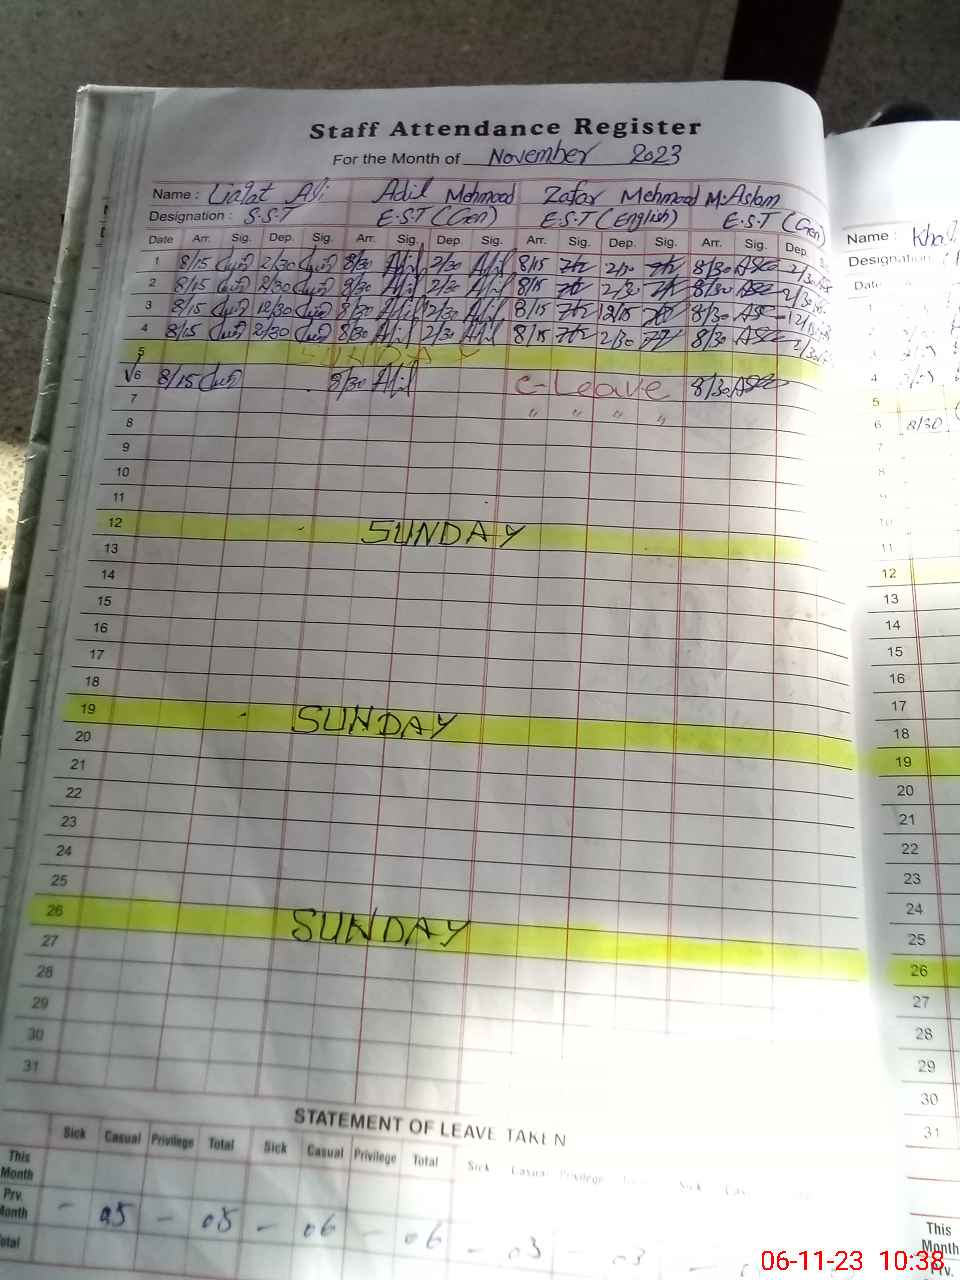 Staff Attendance Register
For the Month of November 2023
Name : Liaqat Ali Adil Mehmood Zafar Mehmood M. Aslam
Designation : S.S.T E.S.T (Gen) E.S.T (English) E.S.T (Gen)
Date Arr. Sig. Dep. Sig. Arr. Sig. Dep. Sig. Arr. Sig. Dep. Sig. Arr. Sig. Dep.
1 8/15 2/30 8/30 Adil 2/30 Adil 8/15 2/30 8/30 2/30
2 8/15 2/30 8/30 Adil 2/30 Adil 8/15 2/30 8/30 2/30
3 8/15 12/30 8/30 Adil 12/30 Adil 8/15 12/15 8/30 12/15
4 8/15 2/30 8/30 Adil 2/30 Adil 8/15 2/30 8/30 2/30
5 SUNDAY
√6 8/15 8/30 Adil C-Leave 8/30
7 " " " "
8
9
10
11
12 SUNDAY
13
14
15
16
17
18
19 SUNDAY
20
21
22
23
24
25
26 SUNDAY
27
28
29
30
31
STATEMENT OF LEAVE TAKEN
Sick Casual Privilege Total Sick Casual Privilege Total Sick Casual Privilege
This Month
Prv. Month - 05 - 05 - 06 - 06 - 03 - 03 -
Total
Name :
Designation
4
5
6 8/30
7
8
10
11
12
13
14
15
16
17
18
19
20
21
22
23
24
25
26
27
28
29
30
31
This Month
Prv.
06-11-23 10:38